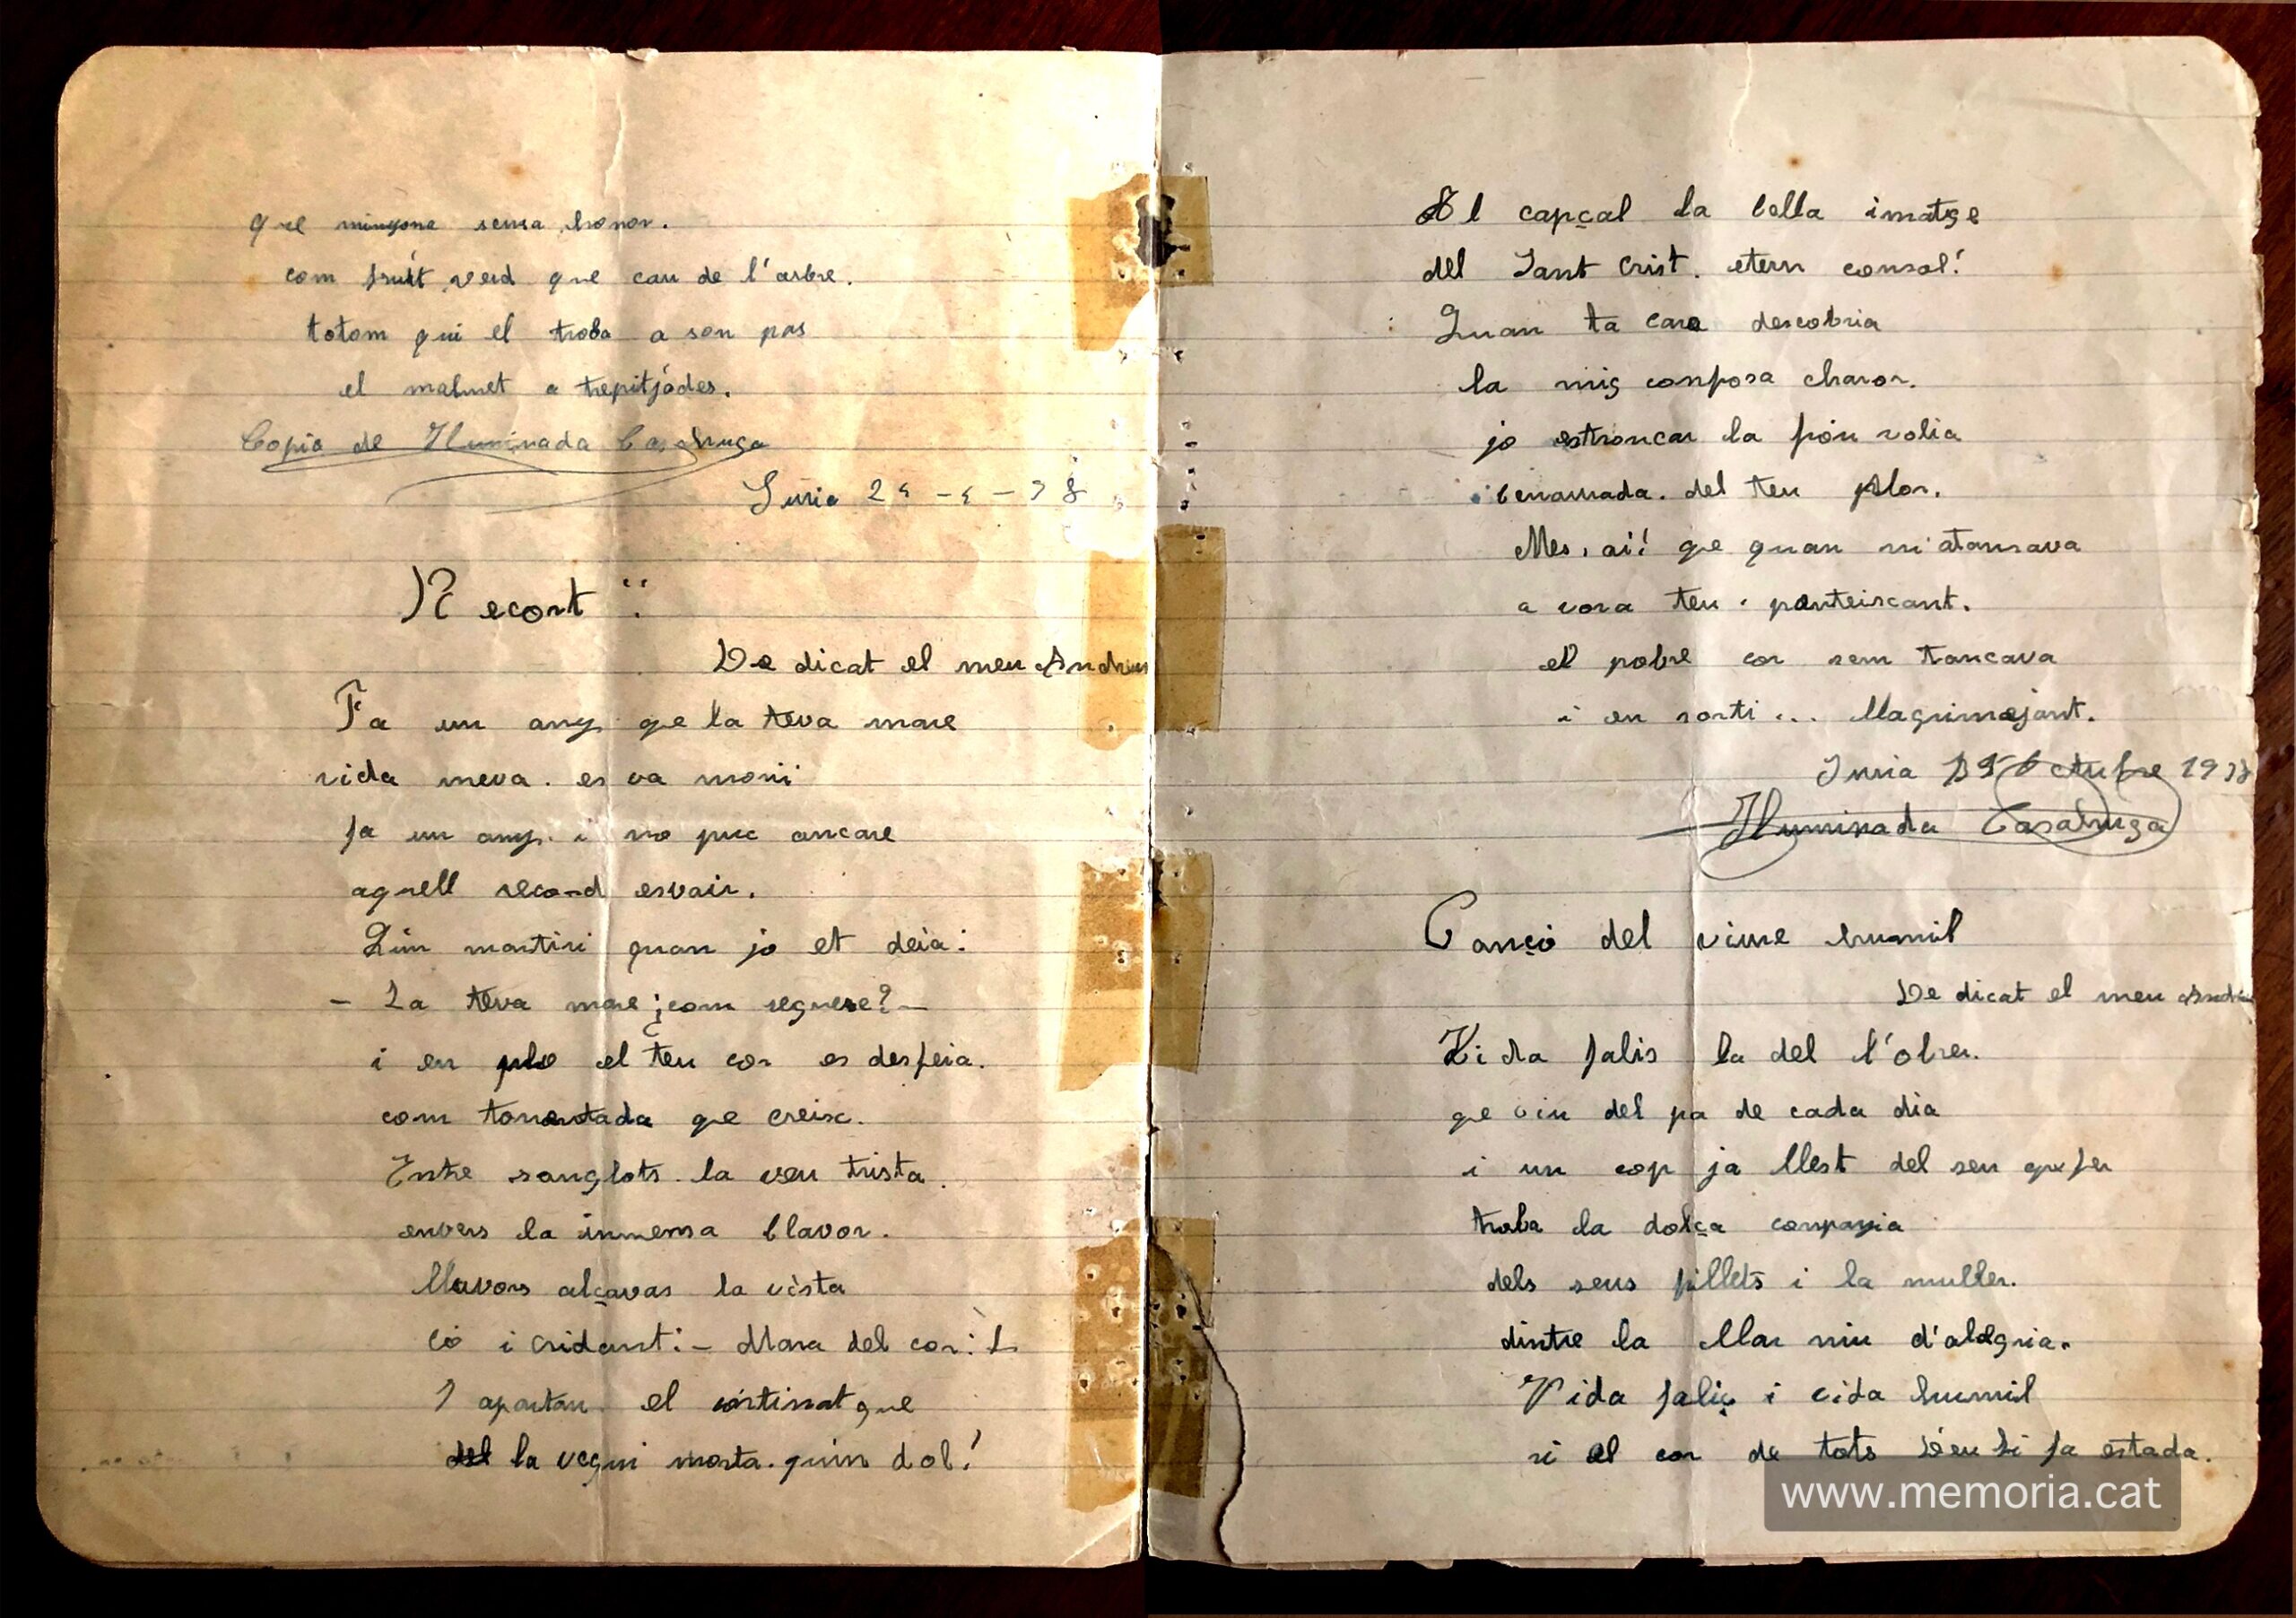 que minyona sensa honor.
com fruit verd que cau de l'arbre.
totom qui el troba a son pas
el malmet a trepitjades.
Copia de Iluminada Casabruga
Suria 25 - 5 - 38
Recort
De dicat el meu Andreu
Fa un any qe la teva mare
vida meva. es va morii
fa un any. i no puc ancare
aquell record esvair.
Quin martiri quan jo et deia:
- La teva mare ¡com seguese? -
i en plo el teu cor es desfeia.
com torrentada qe creisc.
Entre sanglots. la veu trista.
envers la inmensa blavor.
llavors alçavas la vista
có i cridant: - Mara del cor:
I apartan el cortinatgue
la vegui morta. quin dol!
Al capçal la bella imatge
del Sant Crist. etern consol!
Quan ta cara descobria
la mig composa charor.
jo estroncar la fon volia
benamada. del teu plor.
Mes, ai! qe quan m'atansava
a vora teu. panteiscant.
el pobre cor sem tancava
i en sorti... llagrimejant.
Suria 15 Octubre 1938
Iluminada Casabruga
Canço del viure humil
De dicat el meu Andreu
Vida falis la del l'obrer.
qe viu del pa de cada dia
i un cop ja llest del seu quefer
troba la dolça companyia
dels seus fillets i la muller.
dintre la llar niu d'alegria.
Vida faliç i vida humil
si al cor de tots Déu hi fa estada.
www.memoria.cat